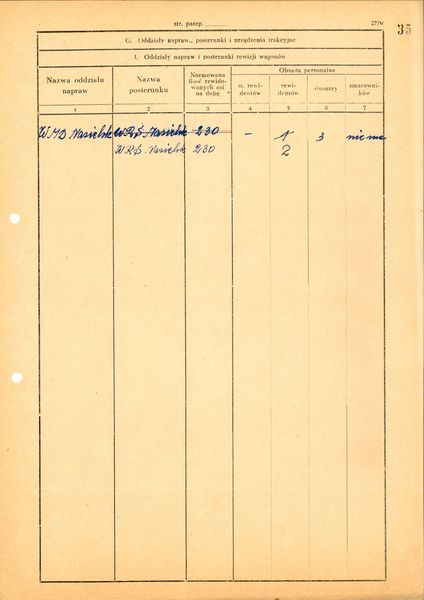 str. paszp.
27/w
35
G. Oddziały napraw., posterunki i urządzenia trakcyjne
I. Oddziały napraw i posterunki rewizji wagonów
Nazwa oddziału napraw
Nazwa posterunku
Normowana ilość rewidowanych osi na dobę *
Obsada personalna
st. rewidentów
rewidentów
ślusarzy
smarowników
1 2 3 4 5 6 7
Nasielsk Nasielsk 230 – 1 3 niema
Nasielsk 230 2